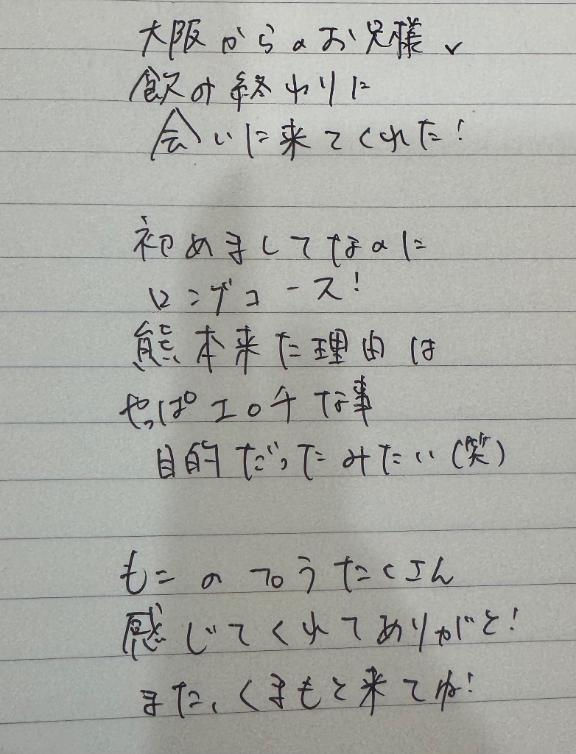 大阪からのお兄様、
飲み終わりに
会いに来てくれた!
初めましてなのに
ロングコース!
熊本来た理由は
やっぱエロチな事
目的だったみたい(笑)
もこの フロうたくさん
感じてくれてありがと!
また、くまもと来てね!